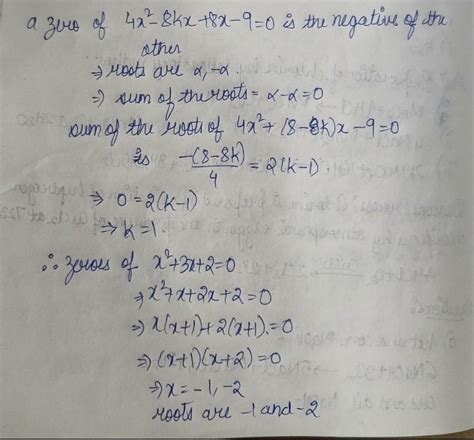 a zero of 4x²-8kx+8x-9=0 is the negative of the
other
⇒ roots are α, -α
⇒ sum of the roots = α-α=0
sum of the roots of 4x²+(8-8k)x-9=0
is -(8-8k)/4 = 2(k-1)
⇒ 0=2(k-1)
⇒ k=1
∴ zeroes of x²+3x+2=0
⇒ x²+x+2x+2=0
⇒ x(x+1)+2(x+1)=0
⇒ (x+1)(x+2)=0
⇒ x=-1,-2
roots are -1 and -2